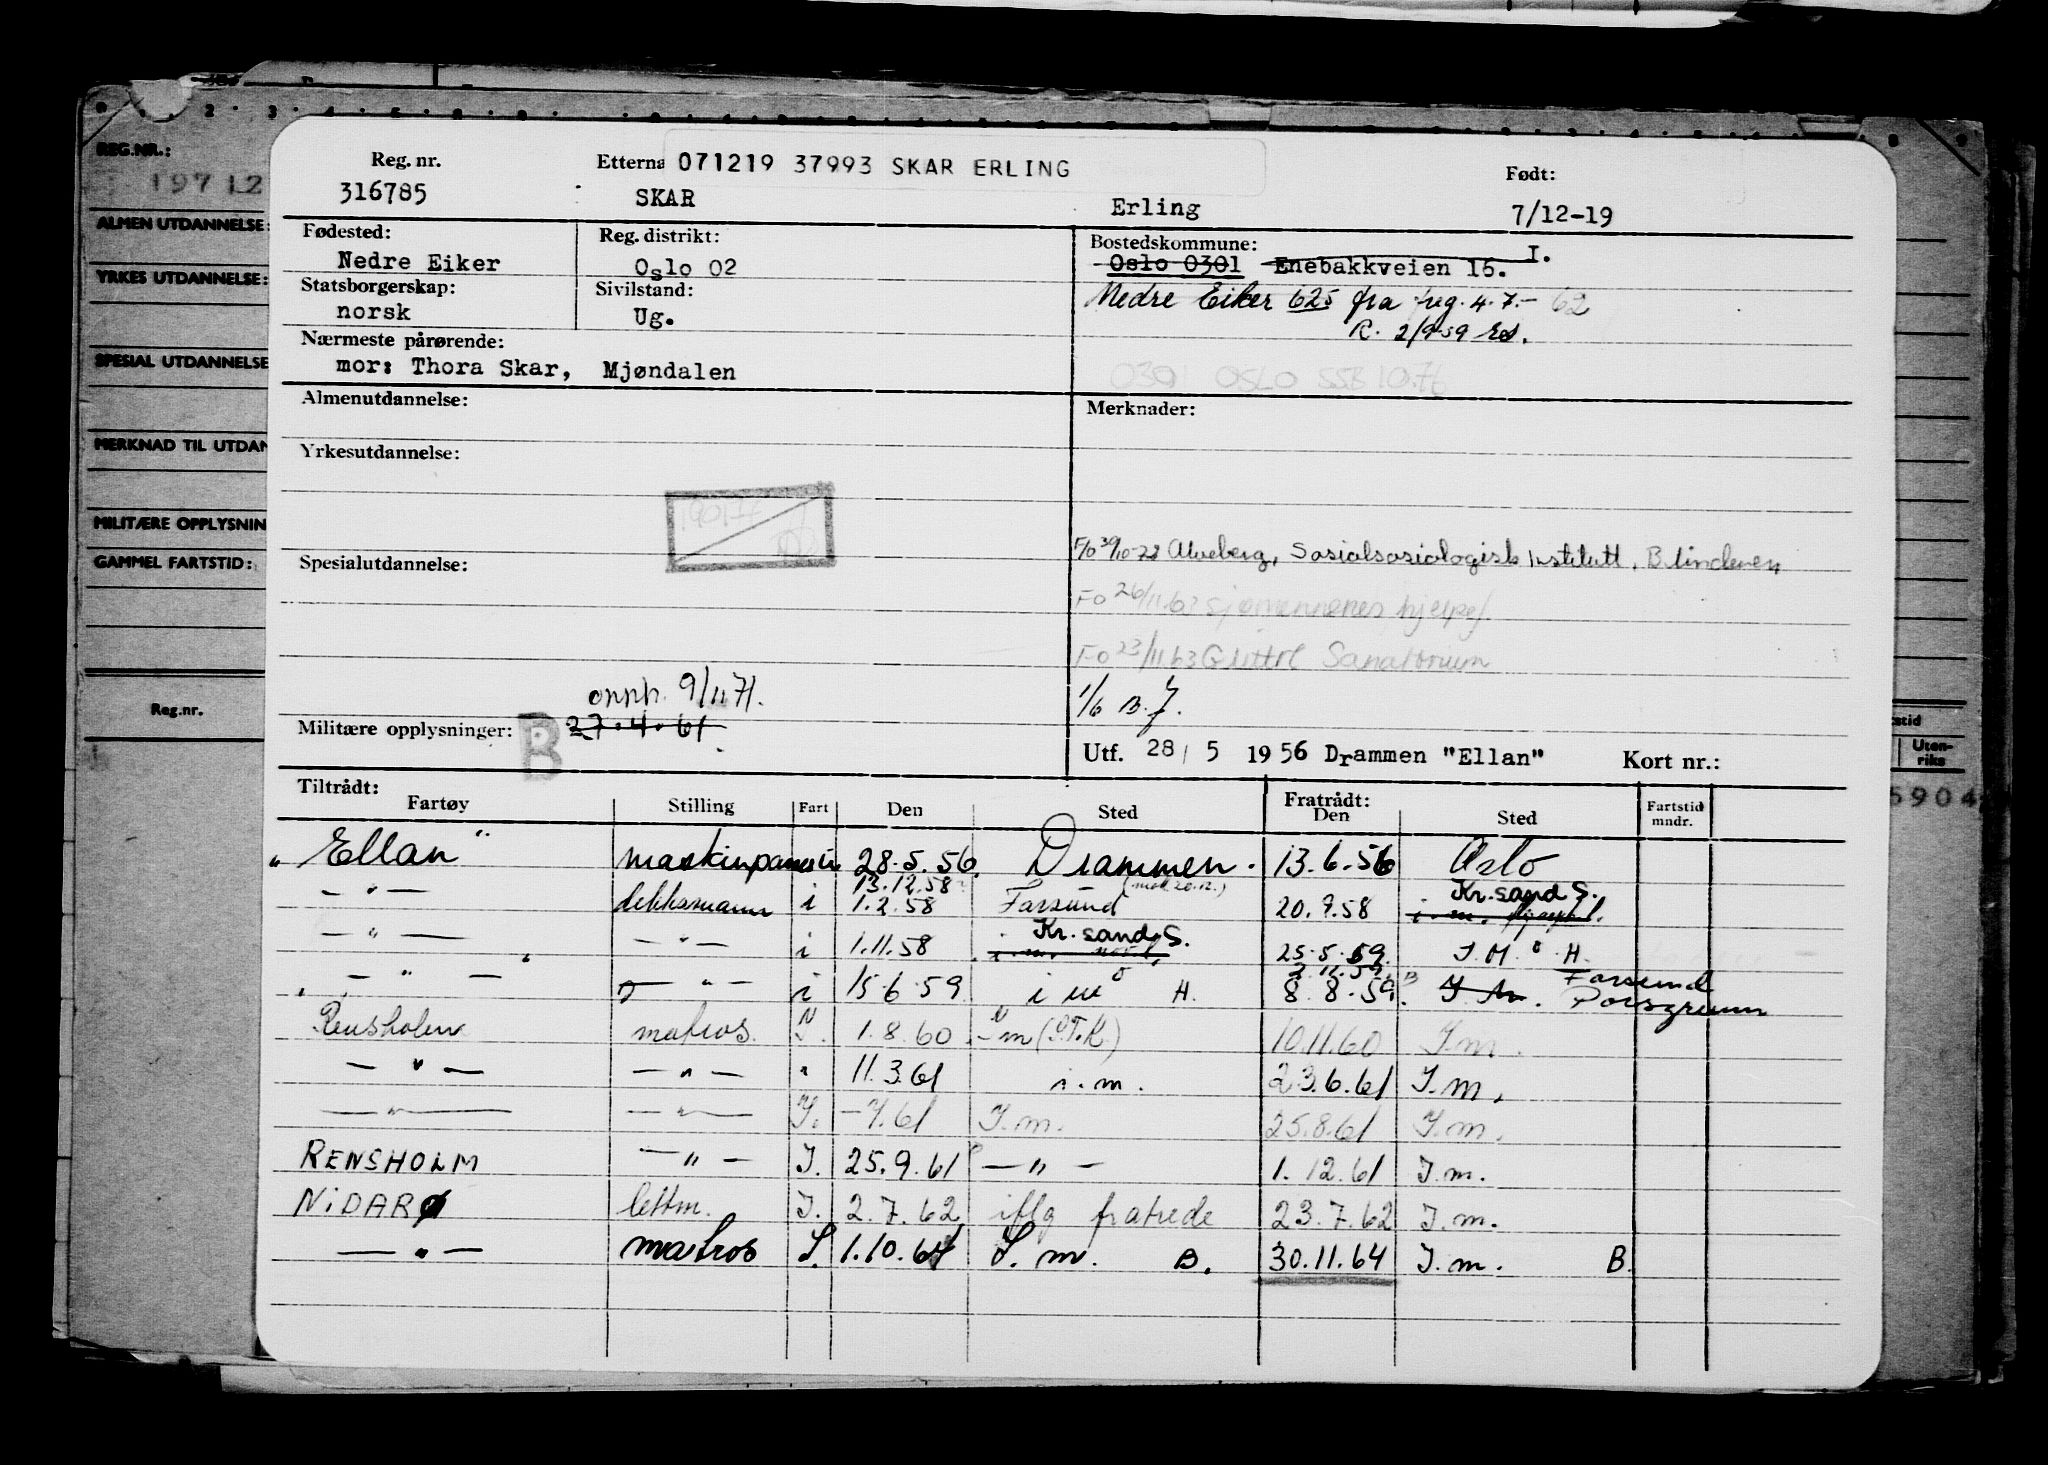 REG.NR.:
19712
ALMEN UTDANNELSE:
YRKES UTDANNELSE:
SPESIAL UTDANNELSE
MERKNAD TIL UTDAN
MILITÆRE OPPLYSNIN
GAMMEL FARTSTID:
Reg.nr.
Uten-
riks
5904
Reg. nr. Etterna 071219 37993 SKAR ERLING Født:
316785 SKAR Erling 7/12-19
Fødested: Reg. distrikt: Bostedskommune:
Nedre Eiker Oslo 02 Oslo 0301 Enebakkveien 16. I.
Statsborgerskap: Sivilstand: Nedre Eiker 625 fra reg. 4.7.- 62
norsk Ug. R. 2/9-59
Nærmeste pårørende:
mor: Thora Skar, Mjøndalen 0301 OSLO SSB 10.76
Almenutdannelse: Merknader:
Yrkesutdannelse:
Spesialutdannelse: F/o 30/10-73 Alveberg, Sosialsosiologisk Institutt, Blindern
Fo 26/11.63 sjømennenes hjelpef.
Fo 23/11.63 Glittre Sanatorium
opph. 9/11 71. 1/6 B.J.
Militære opplysninger: B 27.4.61
Utf. 28/5 1956 Drammen "Ellan" Kort nr.:
Tiltrådt: Fratrådt:
Fartøy Stilling Fart Den Sted Den Sted Fartstid mndr.
"Ellan" maskinpasser i 28.5.56. Drammen. 13.6.56 Oslo
13.12.58 Kr.sand S.
— " — dekksmann i 1.2.58 Farsund 20.9.58 i.m.
Kr. sand S.
— " — — " — i 1.11.58 i.m. 25.5.59. I.M. H.
2.12.59 Farsund
— " — — " — i 15.6.59 i m H. 8.8.59. I.m. Porsgrunn
Rensholm matros I. 1.8.60 I m (S.T.K.) 10.11.60 I.m.
— " — — " — " 11.3.61 i.m. 23.6.61 I.m.
— " — — " — I. -7.61 I.m. 25.8.61 I.m.
RENSHOLM — " — I. 25.9.61 — " — 1.12.61 I.m.
NIDARØ lettm. I. 2.7.62 iflg fratrede 23.7.62 I.m.
— " — matros I. 1.10.64 I.m. B. 30.11.64 I.m. B.